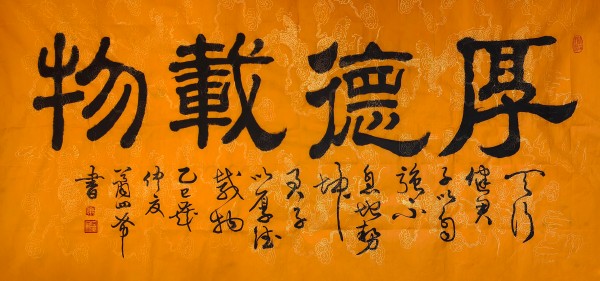 厚德載物
天行
健君
子以自
強不
息地勢
坤
君子
以厚德
載物
乙巳歲
仲夏
書